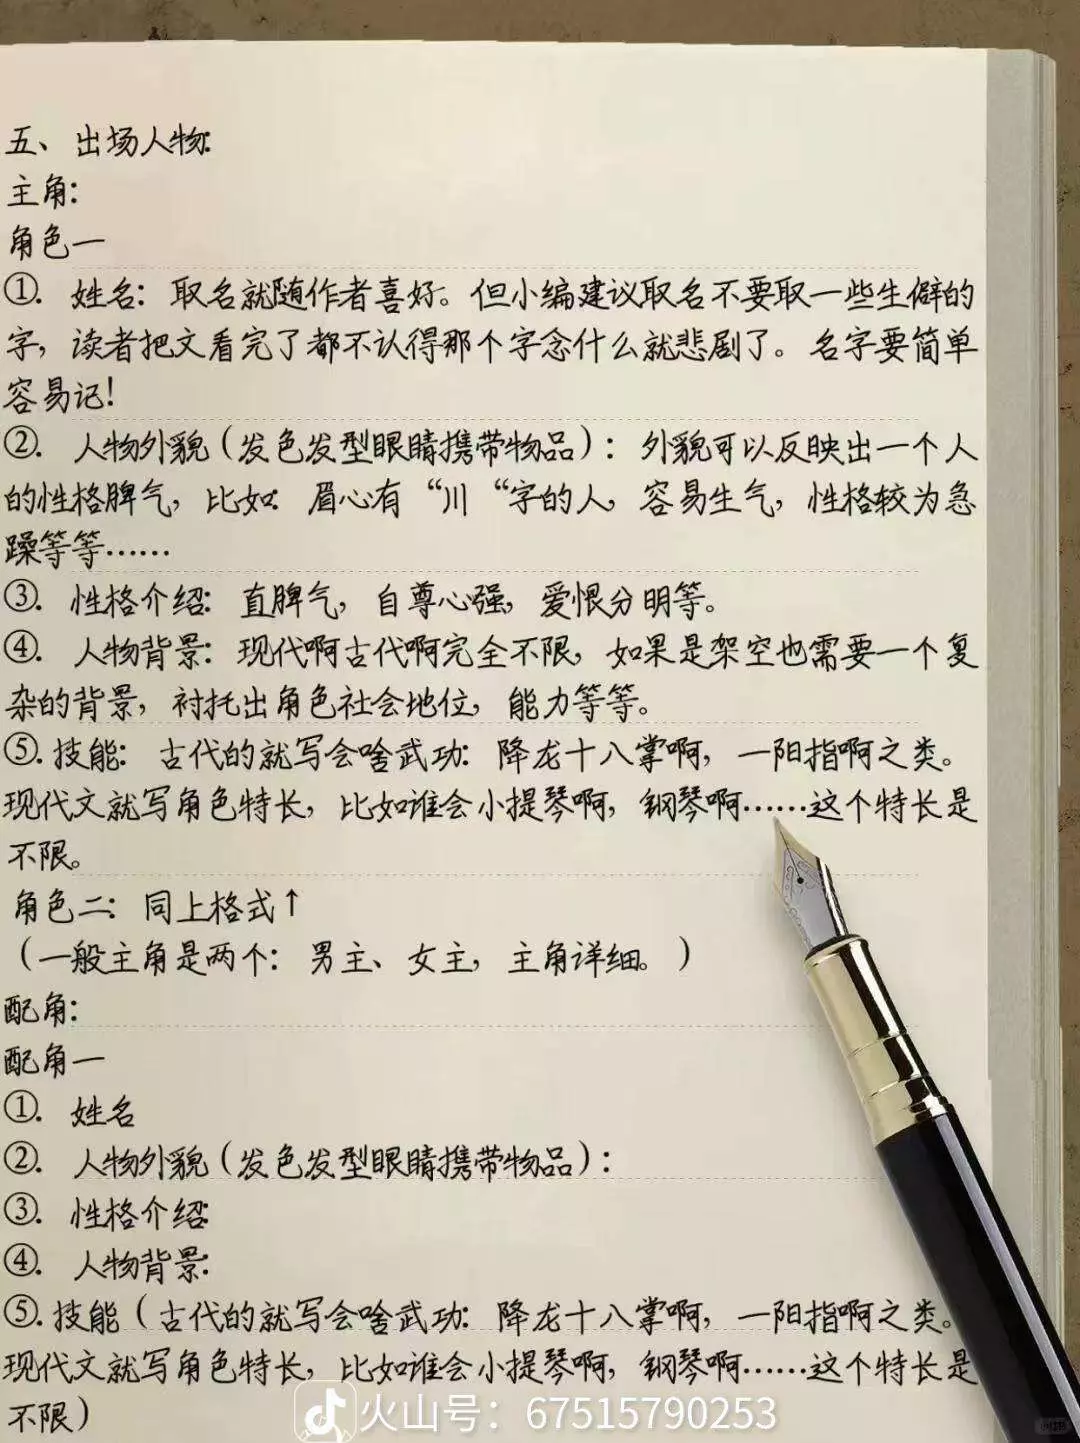 五、出场人物:
主角:
角色一
①. 姓名: 取名就随作者喜好。但小编建议取名不要取一些生僻的
字, 读者把文看完了都不认得那个字念什么就悲剧了。名字要简单
容易记!
②. 人物外貌(发色发型眼睛携带物品): 外貌可以反映出一个人
的性格脾气, 比如: 眉心有“川“字的人, 容易生气, 性格较为急
躁等等……
③. 性格介绍: 直脾气, 自尊心强, 爱恨分明等。
④. 人物背景: 现代啊古代啊完全不限, 如果是架空也需要一个复
杂的背景, 衬托出角色社会地位, 能力等等。
⑤. 技能: 古代的就写会啥武功: 降龙十八掌啊, 一阳指啊之类。
现代文就写角色特长, 比如谁会小提琴啊, 钢琴啊……这个特长是
不限。
角色二: 同上格式↑
(一般主角是两个: 男主、女主, 主角详细。)
配角:
配角一
①. 姓名
②. 人物外貌(发色发型眼睛携带物品):
③. 性格介绍:
④. 人物背景:
⑤. 技能(古代的就写会啥武功: 降龙十八掌啊, 一阳指啊之类。
现代文就写角色特长, 比如谁会小提琴啊, 钢琴啊……这个特长是
不限)
火山号: 67515790253